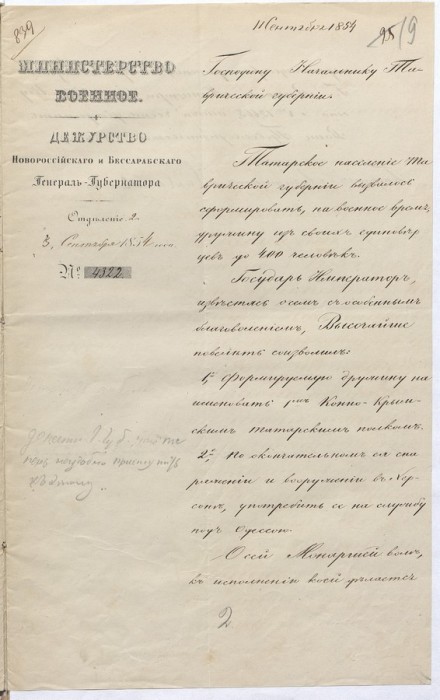 839
11 Сентября 1854
95/9
МИНИСТЕРСТВО
ВОЕННОЕ.
ДЕЖУРСТВО
Новороссійскаго и Бессарабскаго
Генералъ-Губернатора
Отдѣленіе 2.
3, Сентября 1854
№ 4322.
Господину Начальнику Та-
врической губерніи.
Татарское населеніе Та-
врической губерніи вызвалось
сформировать, на военное время,
дружину изъ своихъ
до 400 человѣкъ.
Государь Императоръ,
известясь о семъ съ особеннымъ
благоволеніемъ, Высочайше
повелѣть соизволилъ:
1, Формируемую дружину на-
именовать Конно-Крым-
скимъ татарскимъ полкомъ.
2, По окончательномъ ея сна-
ряженіи и вооруженіи въ Хер-
сонѣ, употребить ее на службу
подъ Одессою.
О сей Монаршей волѣ,
къ исполненію коей дѣлается
2